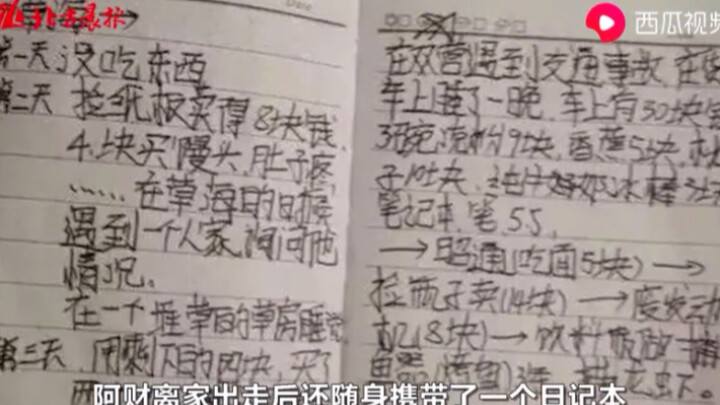 北京晨报
西瓜视频
草海
Date
第一天 没吃东西
第二天 捡纸板卖得8块钱
4块买馒头,肚子疼
……在草海的时候
遇到一个人家,询问他
情况。
在一个堆草的草房睡觉
第三天 用剩下的四块,买了
在双营遇到交通事故,在
车上睡了一晚,车上有30块
3碗凉粉9块,香蕉5块,
子10块
笔记本,笔5.5
→昭通(吃面5块)→
捡瓶子卖(14块)→废发动
机(8块)→饮料瓶做捕
鱼器
龙虾。
阿财离家出走后还随身携带了一个日记本